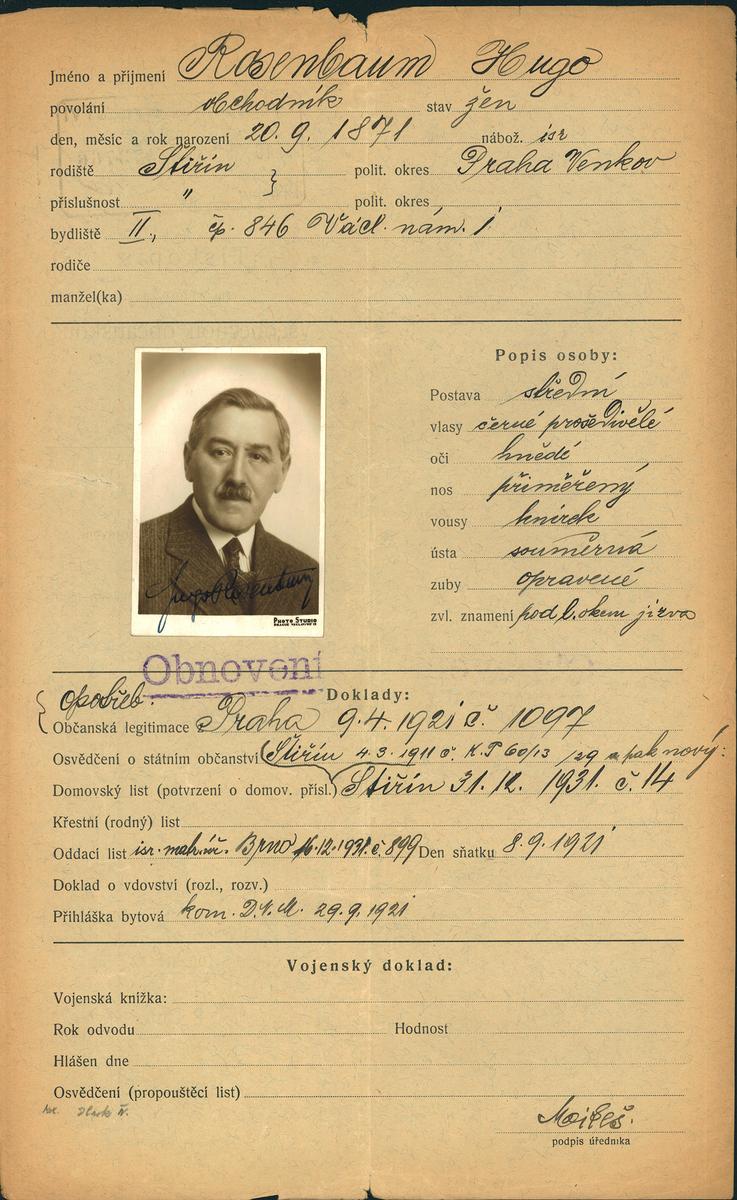 Jméno a příjmení Rosenbaum Hugo
povolání obchodník stav žen
den, měsíc a rok narození 20. 9. 1871 nábož. isr
rodiště Štiřín } polit. okres Praha Venkov
příslušnost " polit. okres
bydliště II., čp. 846 Václ. nám. 1
rodiče
manžel(ka)
Popis osoby:
Postava střední
vlasy černé prošedivělé
oči hnědé
nos přiměřený
vousy knírek
ústa souměrná
zuby opravené
zvl. znamení pod l. okem jizva
Hugo Rosenbaum
PHOTO STUDIO
Obnovení
Doklady:
opotřeb.
Občanská legitimace Praha 9. 4. 1921 č. 1097
Osvědčení o státním občanství (Štiřín 4. 3. 1911 č. 60/13 29 a pak nový:
Domovský list (potvrzení o domov. přísl.) Štiřín 31. 12. 1931. č. 14
Křestní (rodný) list
Oddací list isr. mat. úř. Brno 16. 12. 1931. č. 899 Den sňatku 8. 9. 1921
Doklad o vdovství (rozl., rozv.)
Přihláška bytová kom. 29. 9. 1921
Vojenský doklad:
Vojenská knížka:
Rok odvodu Hodnost
Hlášen dne
Osvědčení (propouštěcí list)
podpis úředníka